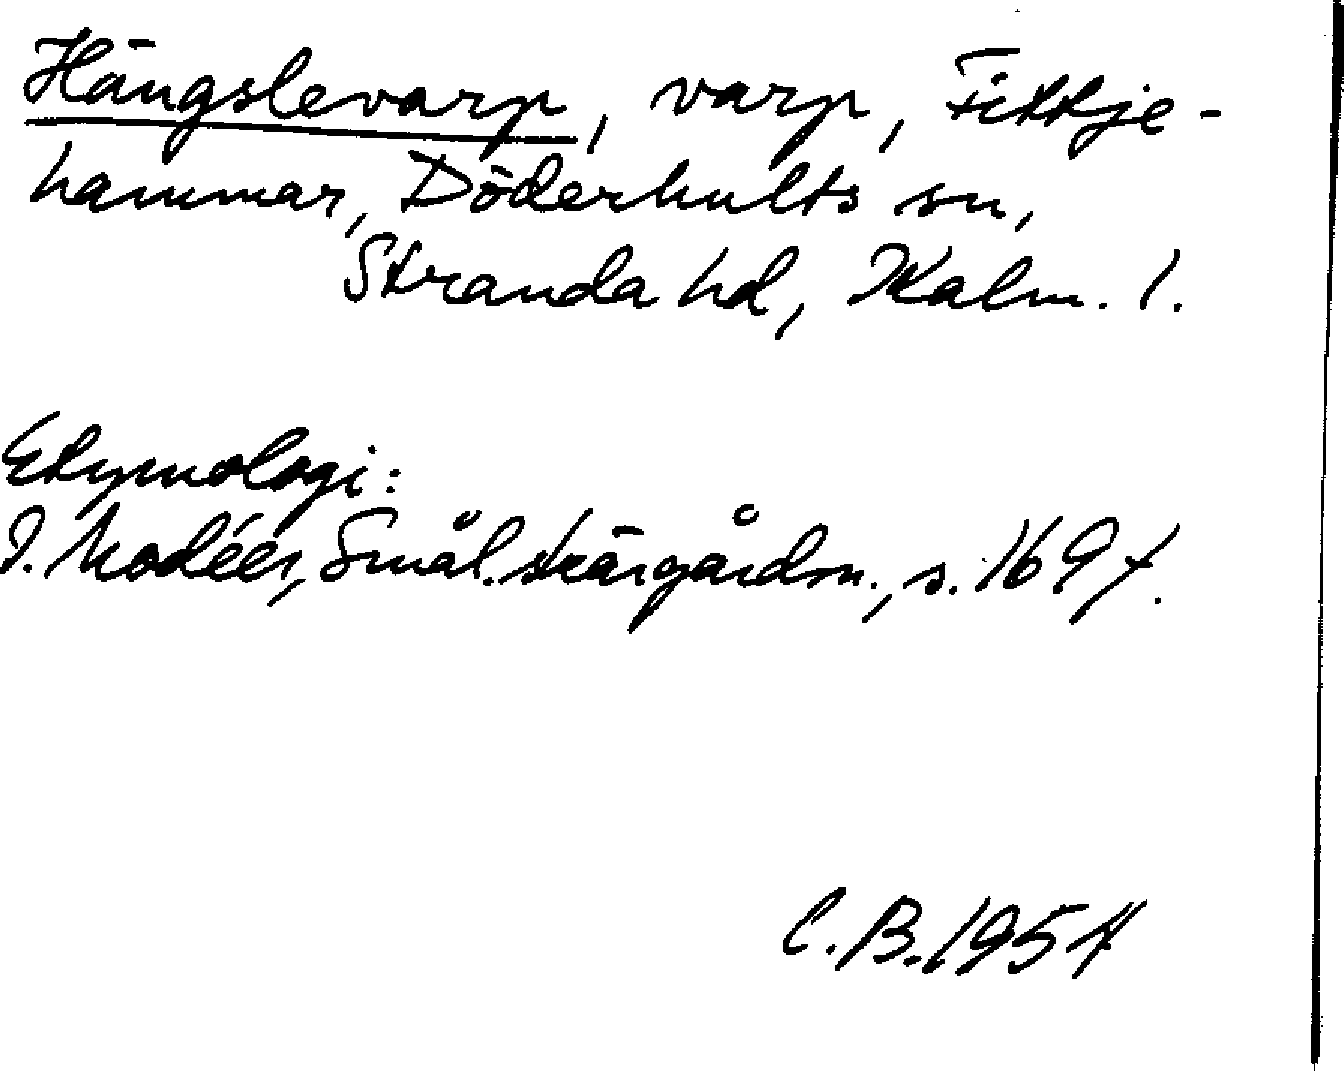 Hängslevarp, varp, Fittje-
hammar, Döderhults sn,
Stranda hd, Kalm. l.
Etymologi:
I. Modéer, Smål. skärgårdsn., s. 169 f.
C. B. 1954